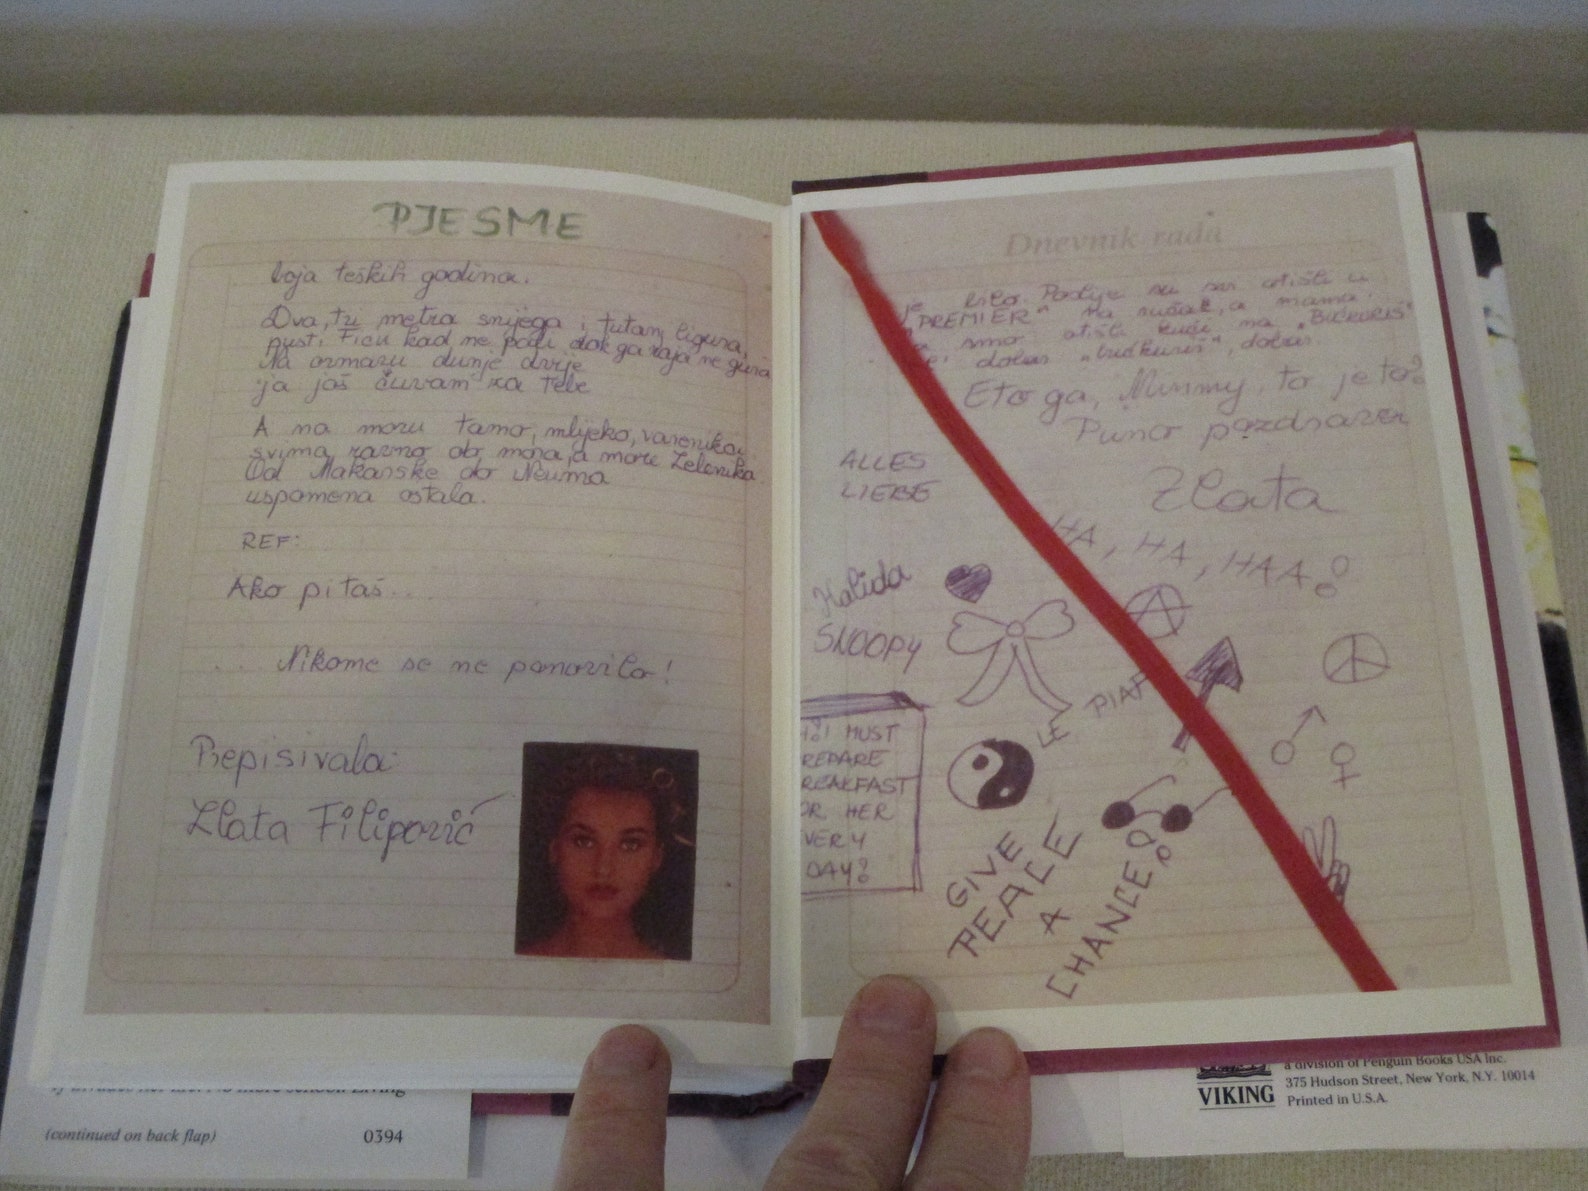 PJESME
boja teških godina.
Dva, tri metra snijega i tutanj ligura,
pusti Fiću kad ne pali dok ga raja ne gura
Na ormaru dunje dvije
ja još čuvam za tebe
A na moru tamo, mlijeko, varenika
svima ravno do mora, a more Zelenika.
Od Makarske do Neuma
uspomena ostala.
REF:
Ako pitaš...
.. Nikome se ne ponovilo!
Prepisivala:
Zlata Filipović
Dnevnik rada
je bilo. Poslije su svi otišli u
"PREMIER" na ručak, a mama,
smo otišli kući na "BUĆKURIŠ"
dobar "bućkuriš", dobar
Eto ga, Mimmy, to je to!
Puno pozdrava
Zlata
HA, HA, HAA!
ALLES
LIEBE
Halida
SNOOPY
LE PIAF
I MUST
REPARE
REAKFAST
OR HER
VERY
DAY!
GIVE
PEACE
A
CHANCE!
(continued on back flap)
0394
VIKING
a division of Penguin Books USA Inc.
375 Hudson Street, New York, N.Y. 10014
Printed in U.S.A.